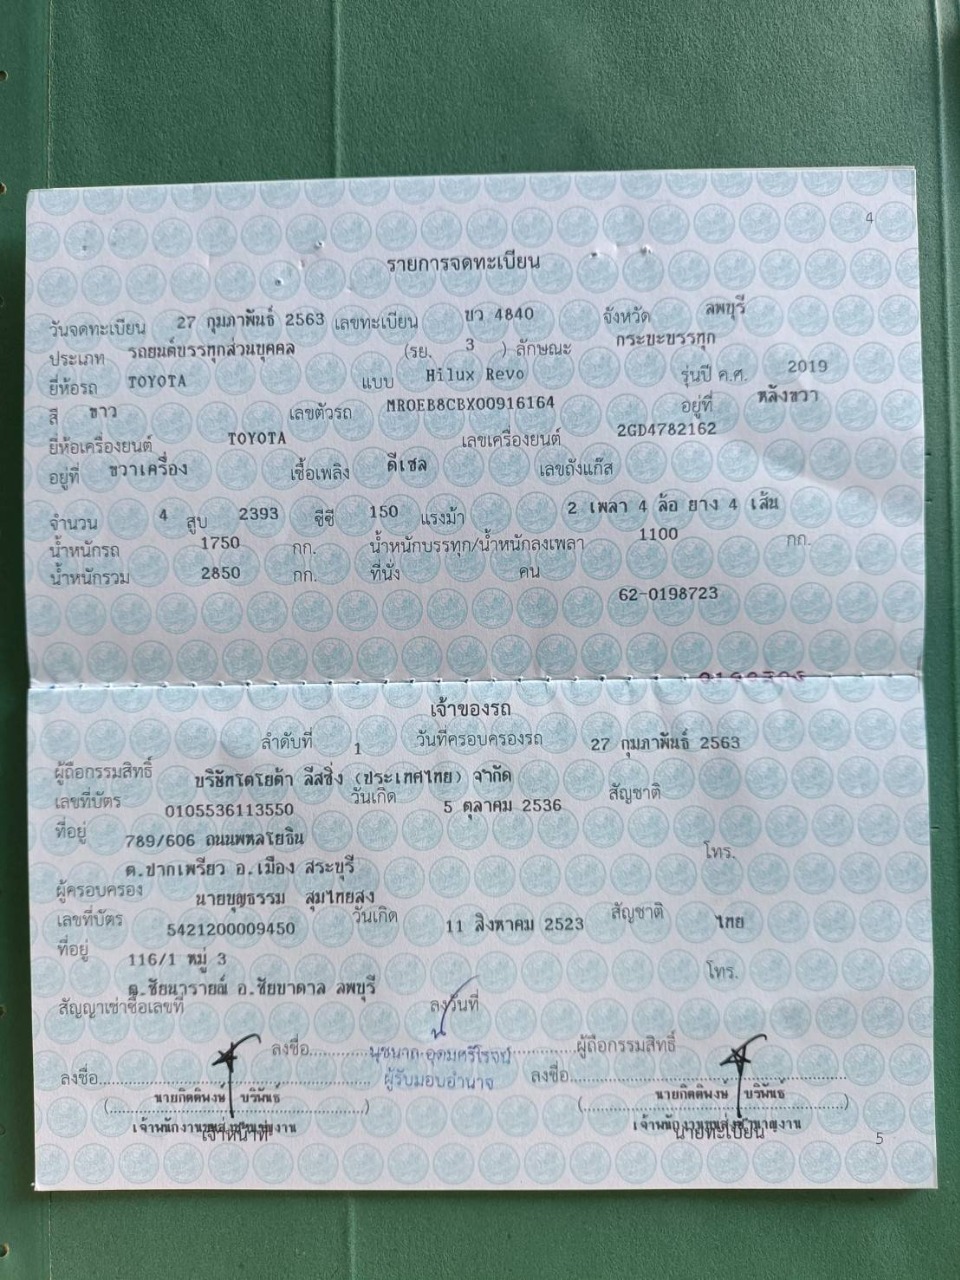 4
รายการจดทะเบียน
วันจดทะเบียน 27 กุมภาพันธ์ 2563 เลขทะเบียน บว 4840 จังหวัด ลพบุรี
ประเภท รถยนต์บรรทุกส่วนบุคคล (รย. 3 ) ลักษณะ กระบะบรรทุก
ยี่ห้อรถ TOYOTA แบบ Hilux Revo รุ่นปี ค.ศ. 2019
สี ขาว เลขตัวรถ MR0EB8CBX00916164 อยู่ที่ หลังขวา
ยี่ห้อเครื่องยนต์ TOYOTA เลขเครื่องยนต์ 2GD4782162
อยู่ที่ ขวาเครื่อง เชื้อเพลิง ดีเซล เลขถังแก๊ส
จำนวน 4 สูบ 2393 ซีซี 150 แรงม้า 2 เพลา 4 ล้อ ยาง 4 เส้น
น้ำหนักรถ 1750 กก. น้ำหนักบรรทุก/น้ำหนักลงเพลา 1100 กก.
น้ำหนักรวม 2850 กก. ที่นั่ง คน
62-0198723
เจ้าของรถ
ลำดับที่ 1 วันที่ครอบครองรถ 27 กุมภาพันธ์ 2563
ผู้ถือกรรมสิทธิ์ บริษัทโตโยต้า ลีสซิ่ง (ประเทศไทย) จำกัด
เลขที่บัตร 0105536113550 วันเกิด 5 ตุลาคม 2536 สัญชาติ
ที่อยู่ 789/606 ถนนพหลโยธิน โทร.
ต.ปากเพรียว อ.เมือง สระบุรี
ผู้ครอบครอง นายบุญธรรม สุมไทยสง
เลขที่บัตร 5421200009450 วันเกิด 11 สิงหาคม 2523 สัญชาติ ไทย
ที่อยู่ 116/1 หมู่ 3 โทร.
ต.ชัยนารายณ์ อ.ชัยบาดาล ลพบุรี
สัญญาเช่าซื้อเลขที่ ลงวันที่
ลงชื่อ นุชนาถ อุดมศรีโรจน์ ผู้ถือกรรมสิทธิ์
ผู้รับมอบอำนาจ
ลงชื่อ ลงชื่อ
(นายกิตติพงษ์ บริพันธ์) (นายกิตติพงษ์ บริพันธ์)
เจ้าพนักงานขนส่งชำนาญงาน เจ้าพนักงานขนส่งชำนาญงาน
เจ้าหน้าที่ นายทะเบียน
5